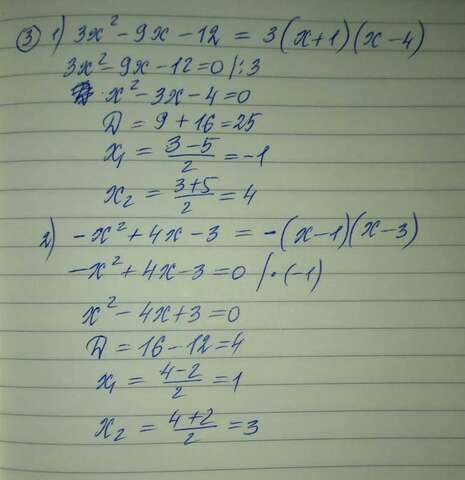 ③ 1) 3x² - 9x - 12 = 3(x+1)(x-4)
3x² - 9x - 12 = 0 /:3
x² - 3x - 4 = 0
D = 9 + 16 = 25
x₁ = (3-5)/2 = -1
x₂ = (3+5)/2 = 4
2) -x² + 4x - 3 = -(x-1)(x-3)
-x² + 4x - 3 = 0 /·(-1)
x² - 4x + 3 = 0
D = 16 - 12 = 4
x₁ = (4-2)/2 = 1
x₂ = (4+2)/2 = 3